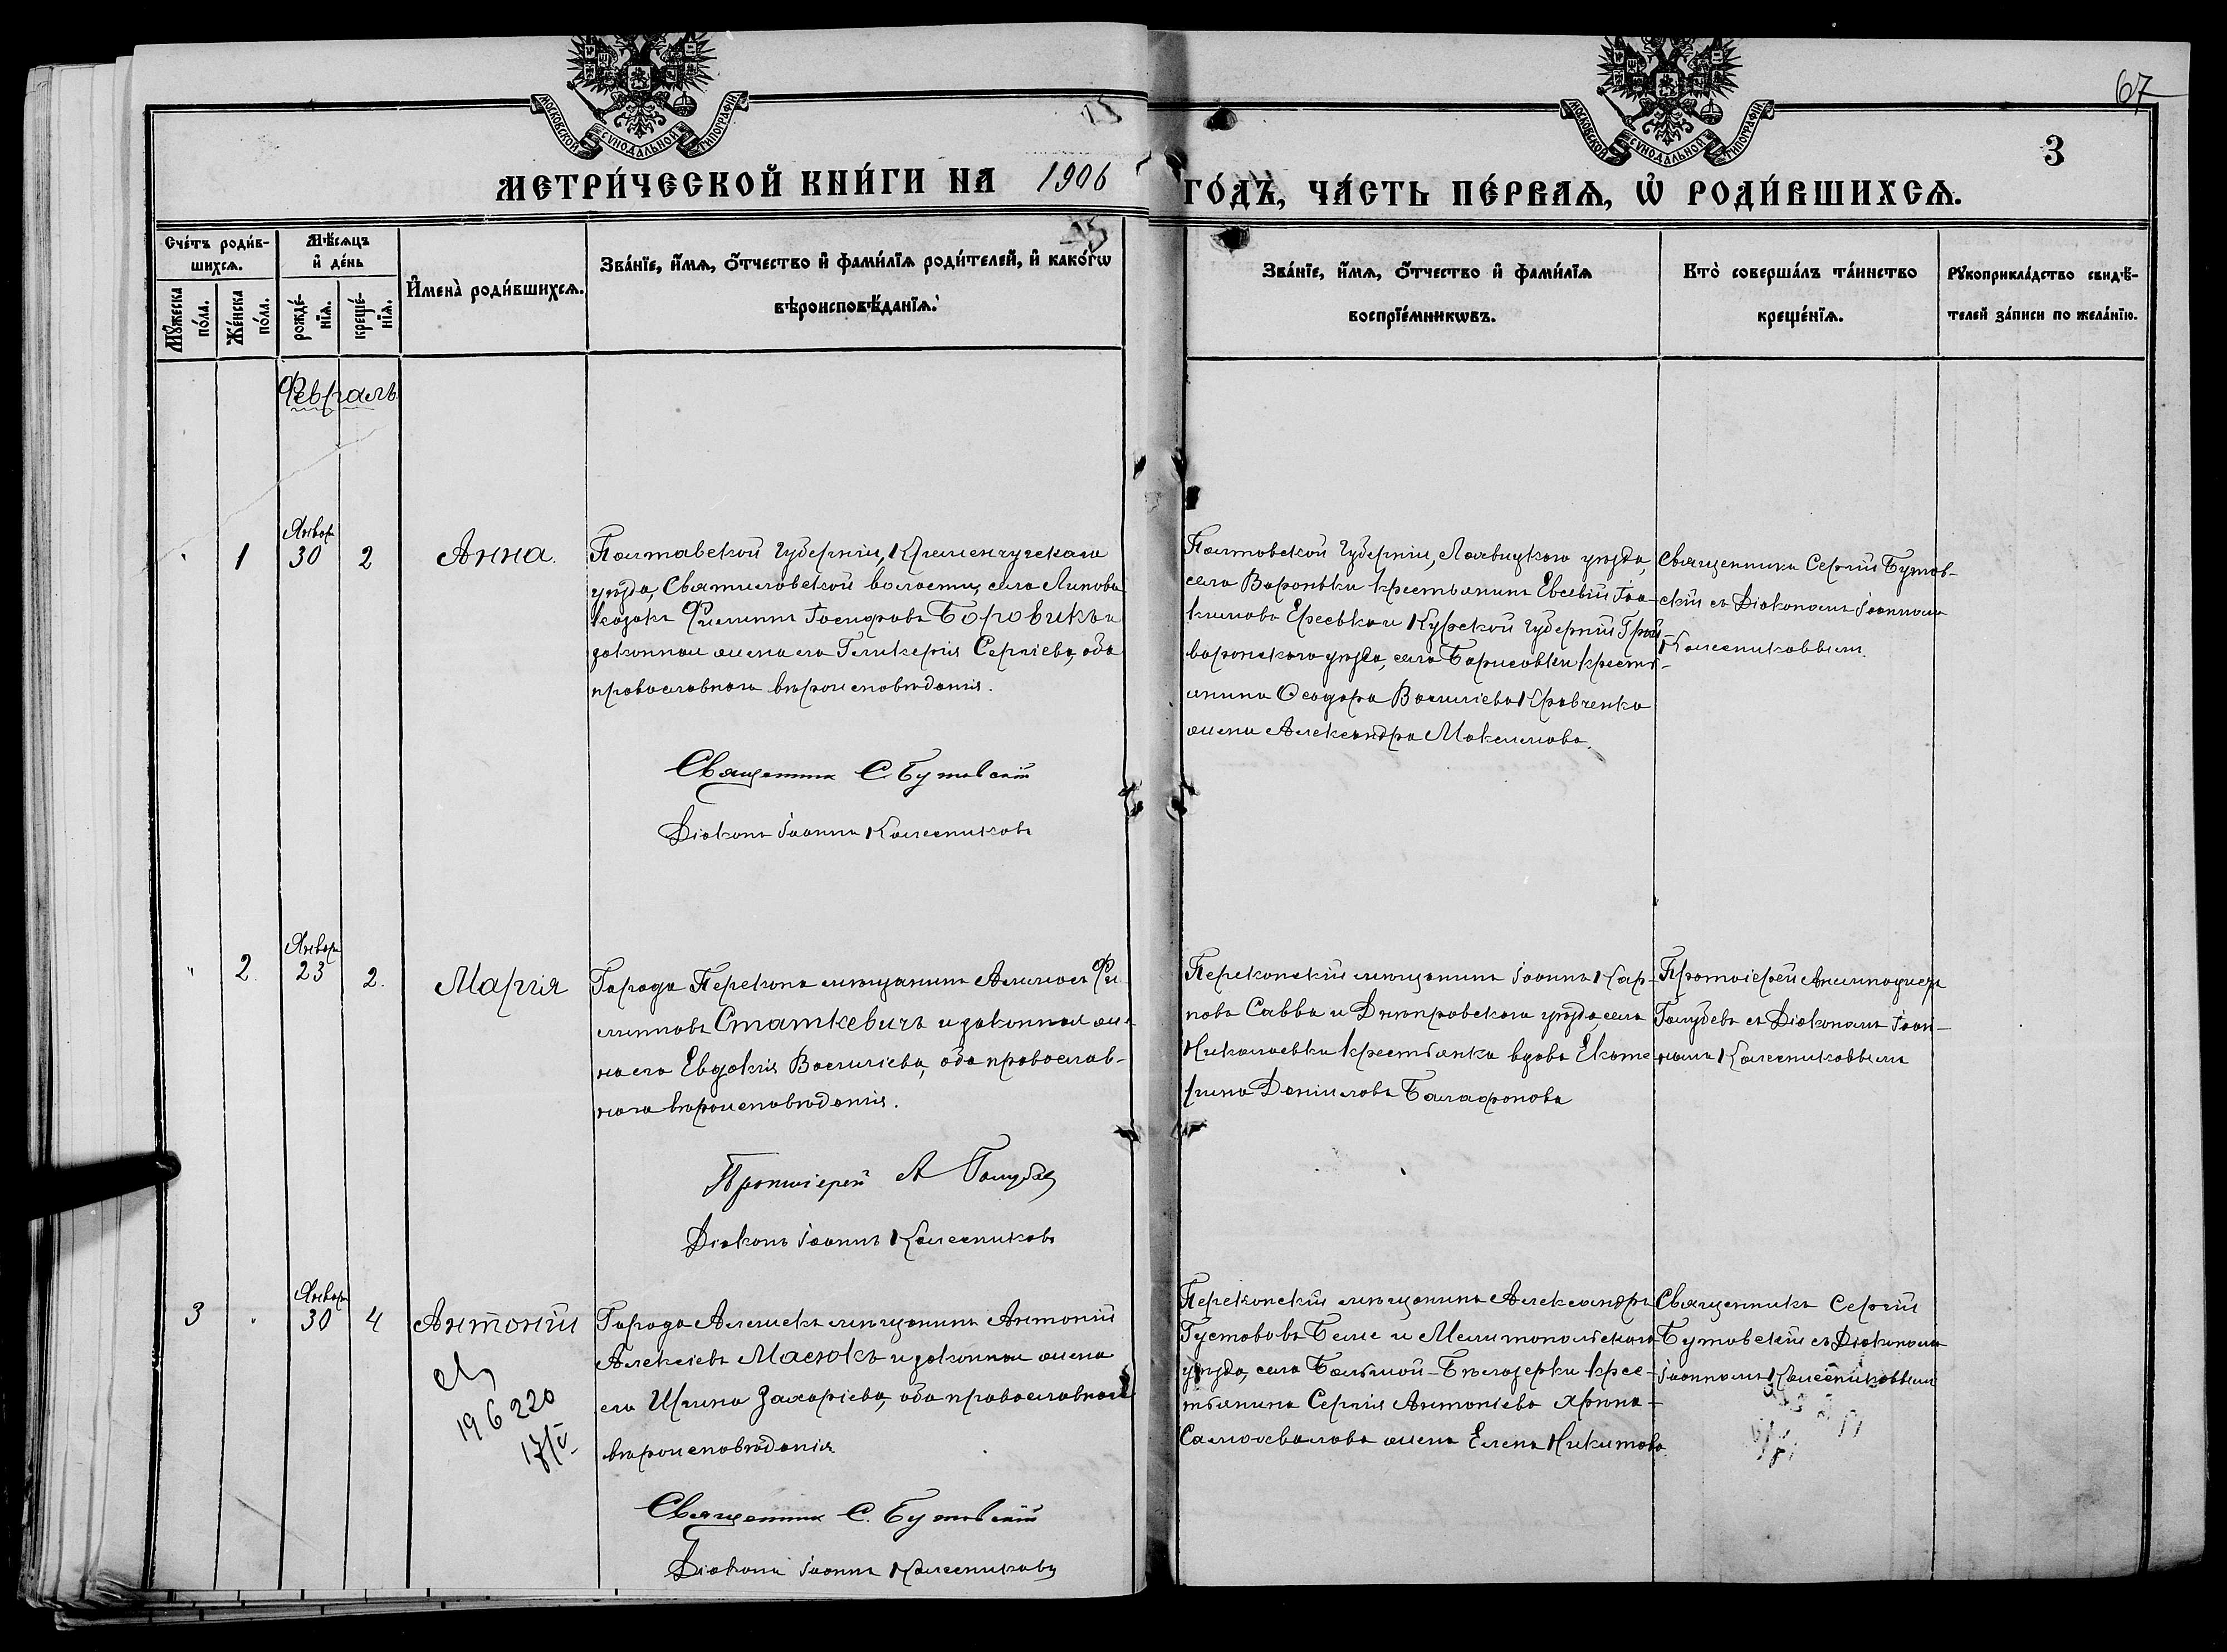 67
3
МОСКОВСКОЙ СѴНОДАЛЬНОЙ ТИПОГРАФІИ
МОСКОВСКОЙ СѴНОДАЛЬНОЙ ТИПОГРАФІИ
МЕТРИ́ЧЕСКОЙ КНИ́ГИ НА 1906 ГО́ДЪ, ЧА́СТЬ ПЕ́РВАѦ, Ѽ РОДИ́ВШИХСѦ.
Сче́тъ роди́в-
шихсѧ.
Мꙋ́жеска
по́ла.
Же́нска
по́ла.
Мѣ́сѧцъ
и҆ де́нь
рожде́-
нїѧ.
креще́-
нїѧ.
И҆мена̀ роди́вшихсѧ.
Зва́нїе, и҆́мѧ, ѻ҆́тчество и҆ фами́лїѧ роди́телей, и҆ како́гѡ
вѣроисповѣ́данїѧ.
Зва́нїе, и҆́мѧ, ѻ҆́тчество и҆ фами́лїѧ
воспрїе́мникѡвъ.
Кто̀ соверша́лъ та́инство
креще́нїѧ.
Рꙋкоприкла́дство свидѣ́-
телей за́писи по жела́нїю.
Февраль
" 1
Январ
30 2
Анна.
Полтавской губерніи, Кременчугскаго
уѣзда, Святиловской волости, села Липова
козакъ Филиппъ Іосифовъ Боровикъ и
законная жена его Гликерія Сергіева, оба
православнаго вѣроисповѣданія.
Священникъ С. Бутовскій
Діаконъ Іоаннъ Колесниковъ
Полтавской губерніи, Лохвицкаго уѣзда,
села Вороньки крестьянинъ Евсевій Іоа-
кимовъ Ересько и Курской губерніи Грай-
воронскаго уѣзда, села Борисовки крестъ-
янина Ѳеодора Василіева Кравченко
жена Александра Максимова.
Священникъ Сергій Бутов-
скій съ Діакономъ Іоанномъ
Колесниковымъ.
" 2.
Январ
23 2.
Марія
Города Перекопа мѣщанинъ Алексѣй Фи-
липповъ Статкевичъ и законная же-
на его Евдокія Василіева, оба православ-
наго вѣроисповѣданія.
Протоіерей А Голубев
Діаконъ Іоаннъ Колесниковъ
Перекопскій мѣщанинъ Іоаннъ Кар-
повъ Савва и Днѣпровскаго уѣзда, села
Николаевки крестьянка вдова Екате-
рина Даніилова Балафонова
Протоіерей
Голубевъ съ Діакономъ Іоан-
номъ Колесниковымъ
3 "
Январ
30 4
Антоній
196220
17/V
Города Алешекъ мѣщанинъ Антоній
Алексіевъ Масюкъ и законная жена
его Ирина Захаріева, оба православнаго
вѣроисповѣданія
Священникъ С. Бутовскій
Діаконъ Іоаннъ Колесниковъ
Перекопскій мѣщанинъ Александръ
Густавовъ Беме и Мелитопольскаго
уѣзда, села Большой-Бѣлозерки крес-
тьянина Сергія Антоніева
Самойлова жена Елена Никитова
Священникъ Сергій
Бутовскій съ Діакономъ
Іоанномъ Колесниковымъ